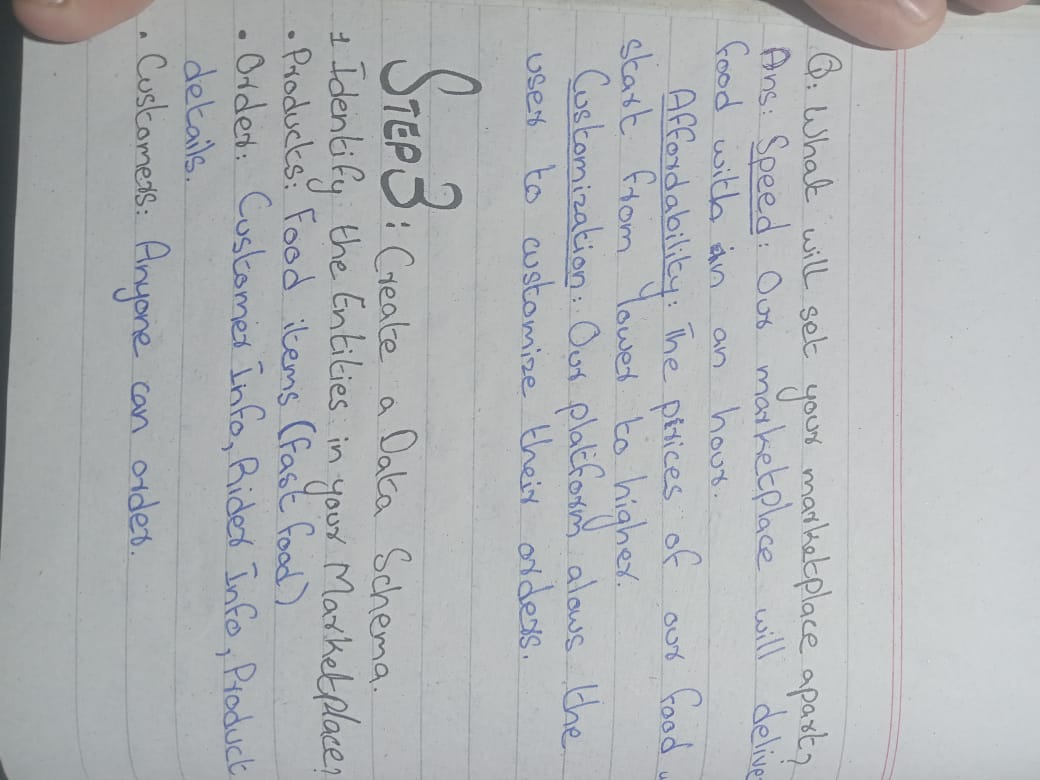 Q: What will set your marketplace apart?
Ans: Speed: Our marketplace will delive
food with in an hour.
Affordability: The prices of our food
start from lower to higher.
Customization: Our platform alows the
user to customize their orders.
STEP 3: Create a Data Schema.
1 Identify the Entities in your Marketplace?
• Products: Food items (fast food)
• Order: Customer Info, Rider Info, Product
details.
• Customers: Anyone can order.